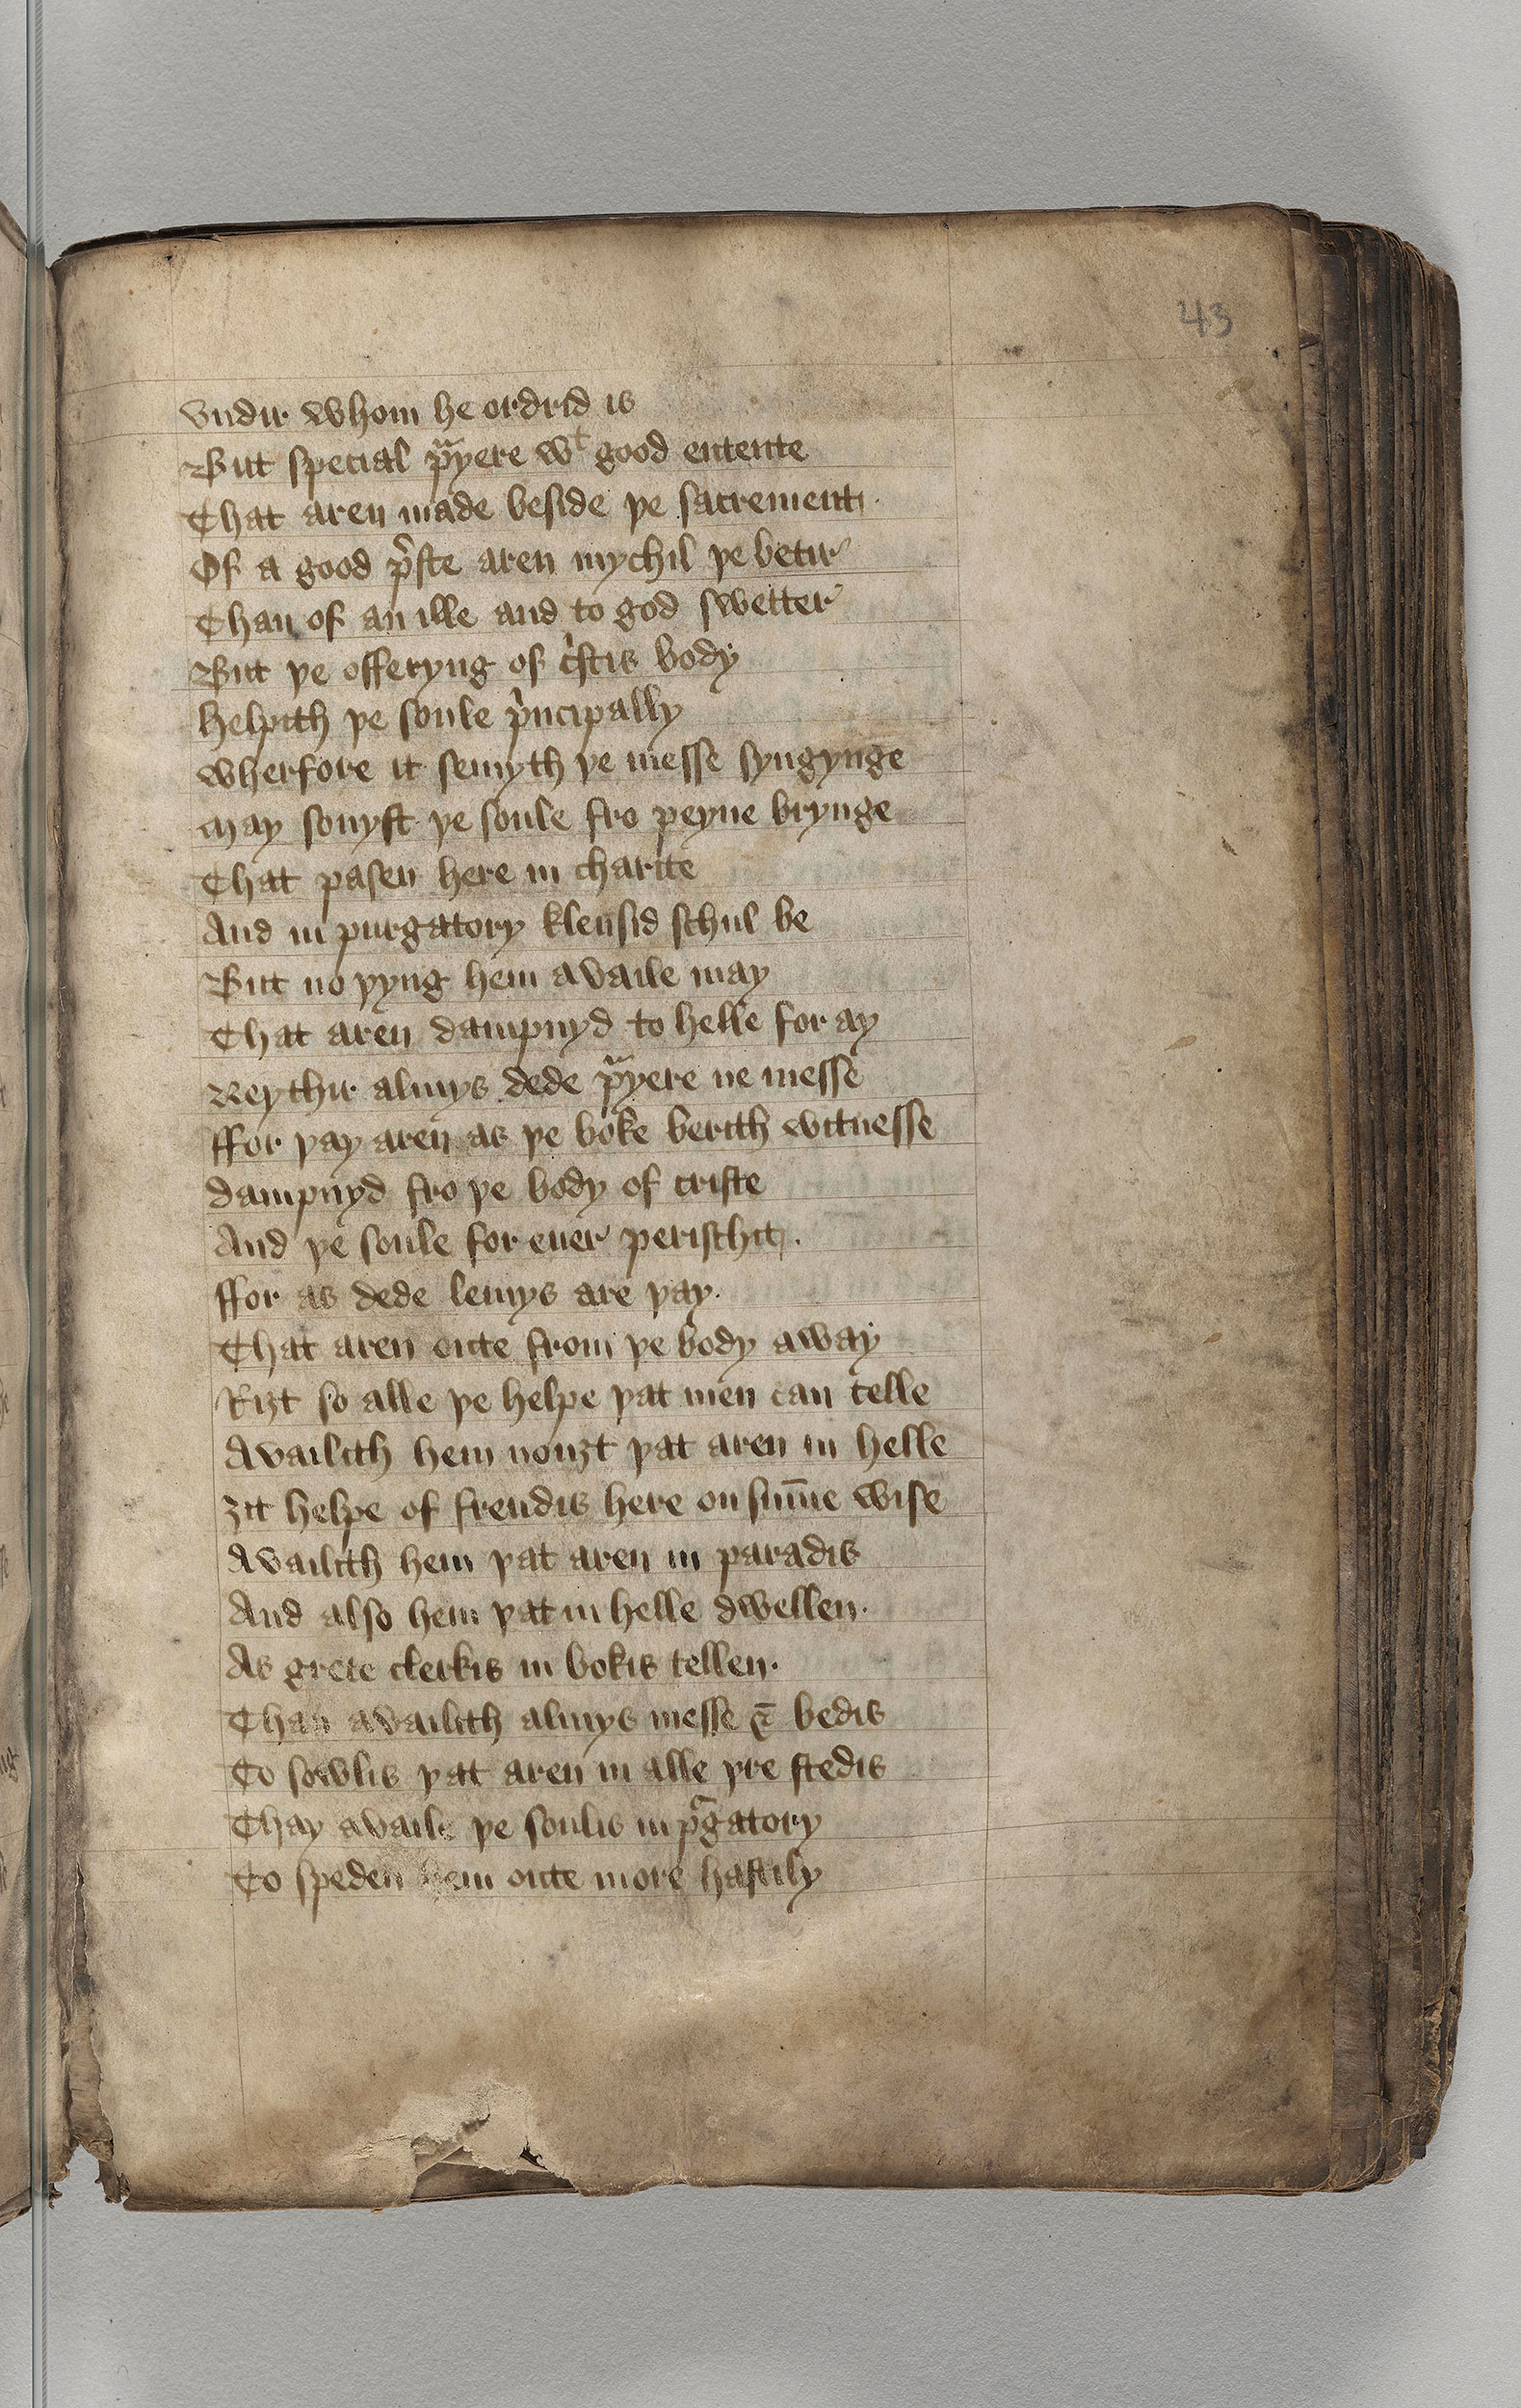 43
vndir whom he ordrid is
But special pͣyere wͭ good entente
That aren made beside þe sacrement
Of a good pͥste aren mychil þe betir
Than of an ille and to god swetter
But þe offeryng of cͥstis body
helpith þe soule pͥncipally
wherfore it semyth þe messe syngynge
may sonyst þe soule fro peyne brynge
That pasen here in charite
And in purgatory klensid schul be
But no þyng hem availe may
That aren dampnyd to helle for ay
Neythir almys dede pͣyere ne messe
ffor þay aren as þe boke berith witnesse
dampnyd fro þe body of criste
And þe soule for euer perischit
ffor as dede lemys are þay
That aren oute from þe body away
Riȝt so alle þe helpe þat men can telle
Availith hem nouȝt þat aren in helle
ȝit helpe of frendis here on sum̄e wise
Availith hem þat aren in paradis
And also hem þat in helle dwellen.
As grete clerkis in bokis tellen.
Than availith almys messe & bedis
To sowlis þat aren in alle þre stedis
Thay availe þe soulis in pͬgatory
To speden hem oute more hastily